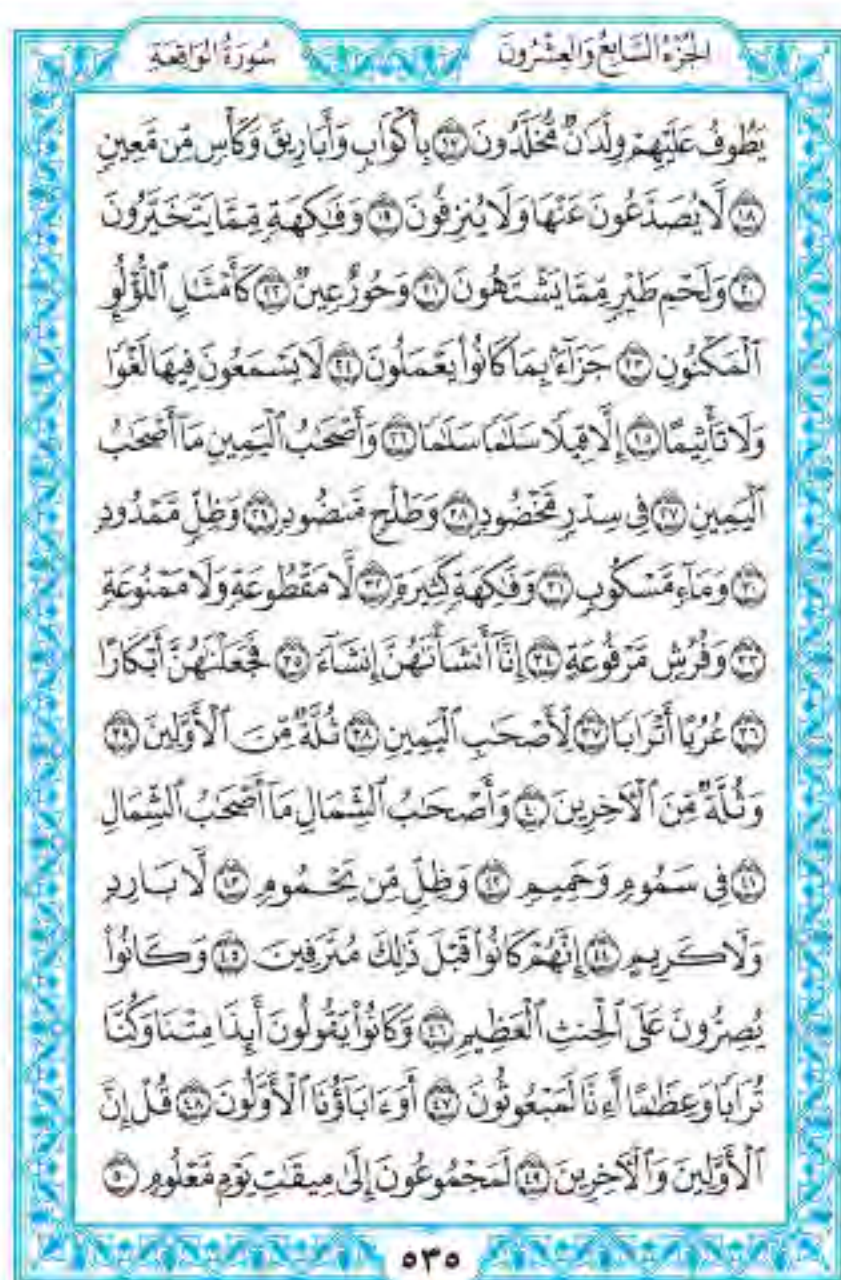 الجُزْءُ السَّابِعُ وَالعِشْرُونَ سُورَةُ الوَاقِعَةِ
يَطُوفُ عَلَيْهِمْ وِلْدَٰنٌ مُّخَلَّدُونَ ١٧ بِأَكْوَابٍ وَأَبَارِيقَ وَكَأْسٍ مِّن مَّعِينٍ
١٨ لَّا يُصَدَّعُونَ عَنْهَا وَلَا يُنزِفُونَ ١٩ وَفَٰكِهَةٍ مِّمَّا يَتَخَيَّرُونَ
٢٠ وَلَحْمِ طَيْرٍ مِّمَّا يَشْتَهُونَ ٢١ وَحُورٌ عِينٌ ٢٢ كَأَمْثَٰلِ ٱللُّؤْلُؤِ
ٱلْمَكْنُونِ ٢٣ جَزَآءًۢ بِمَا كَانُوا۟ يَعْمَلُونَ ٢٤ لَا يَسْمَعُونَ فِيهَا لَغْوًا
وَلَا تَأْثِيمًا ٢٥ إِلَّا قِيلًا سَلَٰمًا سَلَٰمًا ٢٦ وَأَصْحَٰبُ ٱلْيَمِينِ مَآ أَصْحَٰبُ
ٱلْيَمِينِ ٢٧ فِى سِدْرٍ مَّخْضُودٍ ٢٨ وَطَلْحٍ مَّنضُودٍ ٢٩ وَظِلٍّ مَّمْدُودٍ
٣٠ وَمَآءٍ مَّسْكُوبٍ ٣١ وَفَٰكِهَةٍ كَثِيرَةٍ ٣٢ لَّا مَقْطُوعَةٍ وَلَا مَمْنُوعَةٍ
٣٣ وَفُرُشٍ مَّرْفُوعَةٍ ٣٤ إِنَّآ أَنشَأْنَٰهُنَّ إِنشَآءً ٣٥ فَجَعَلْنَٰهُنَّ أَبْكَارًا
٣٦ عُرُبًا أَتْرَابًا ٣٧ لِّأَصْحَٰبِ ٱلْيَمِينِ ٣٨ ثُلَّةٌ مِّنَ ٱلْأَوَّلِينَ ٣٩
وَثُلَّةٌ مِّنَ ٱلْـَٔاخِرِينَ ٤٠ وَأَصْحَٰبُ ٱلشِّمَالِ مَآ أَصْحَٰبُ ٱلشِّمَالِ
٤١ فِى سَمُومٍ وَحَمِيمٍ ٤٢ وَظِلٍّ مِّن يَحْمُومٍ ٤٣ لَّا بَارِدٍ
وَلَا كَرِيمٍ ٤٤ إِنَّهُمْ كَانُوا۟ قَبْلَ ذَٰلِكَ مُتْرَفِينَ ٤٥ وَكَانُوا۟
يُصِرُّونَ عَلَى ٱلْحِنثِ ٱلْعَظِيمِ ٤٦ وَكَانُوا۟ يَقُولُونَ أَئِذَا مِتْنَا وَكُنَّا
تُرَابًا وَعِظَٰمًا أَءِنَّا لَمَبْعُوثُونَ ٤٧ أَوَءَابَآؤُنَا ٱلْأَوَّلُونَ ٤٨ قُلْ إِنَّ
ٱلْأَوَّلِينَ وَٱلْـَٔاخِرِينَ ٤٩ لَمَجْمُوعُونَ إِلَىٰ مِيقَٰتِ يَوْمٍ مَّعْلُومٍ ٥٠
٥٣٥